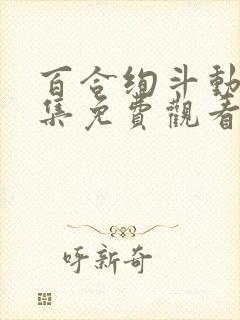 百合绚斗動
集免費觀看
吁新奇